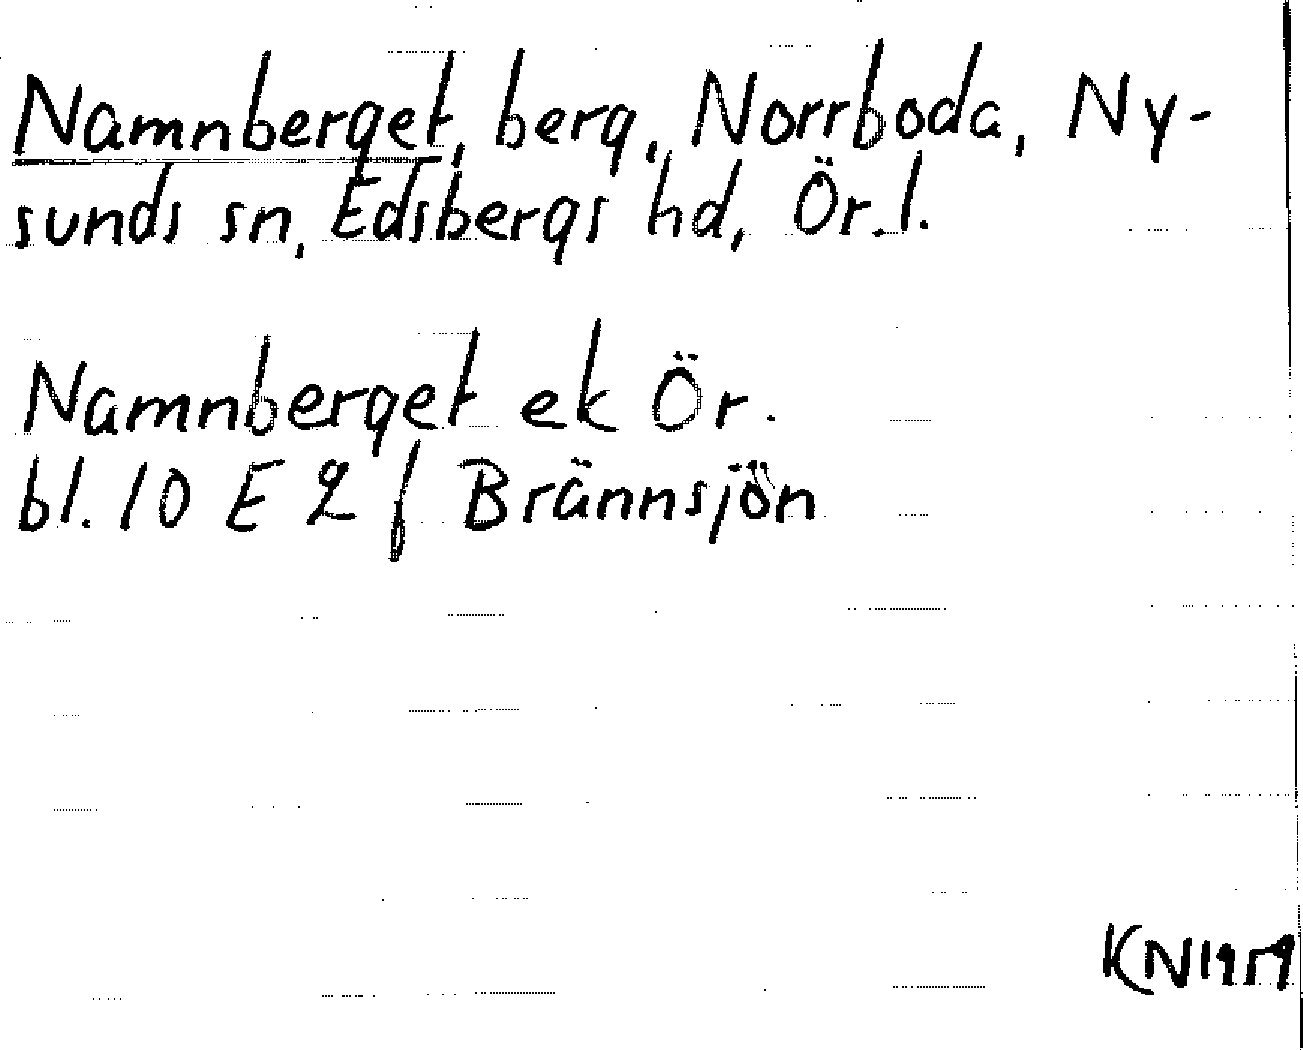 Namnberget, berg, Norrboda, Ny-
sunds sn, Edsbergs hd, Ör.l.
Namnberget ek Ör.
bl. 10 E 2 f Brännsjön
KN 1959